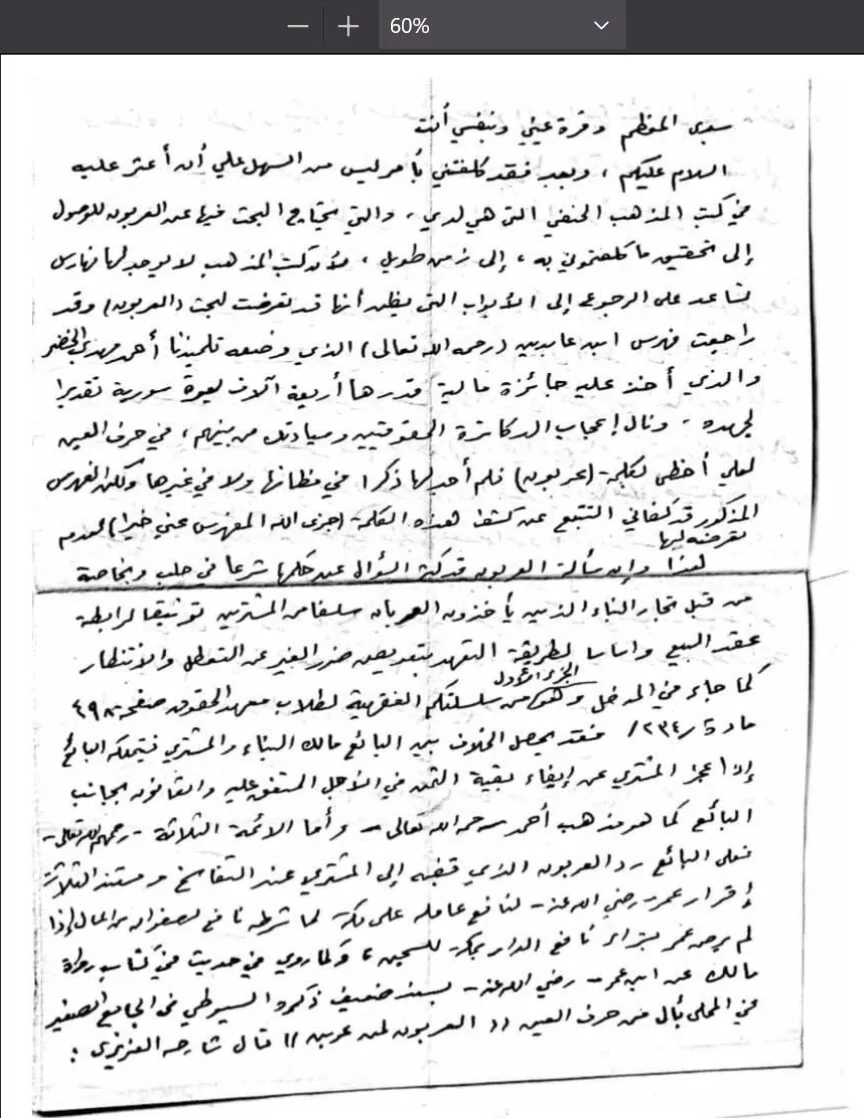 60%
سيدي المعظم وقرة عيني وبنفسي أنت
السلام عليكم، وبعد فقد كلفتني بأمر ليس من السهل علي أن أعثر عليه
في كتب المذهب الحنفي التي هي لدي، والتي يحتاج البحث فيها عن العربون للوصول
إلى تحقيق ما كلفتموني به، إلى زمن طويل، لأن كتب المذهب لا يوجد لها فهارس
تساعد على الرجوع إلى الأبواب التي يظن أنها قد تعرضت لبحث (العربون) وقد
راجعت فهرس ابن عابدين (رحمه الله تعالى) الذي وضعه تلميذنا أحمد مهدي الخضر
والذي أخذ عليه جائزة مالية قدرها أربعة آلاف ليرة سورية تقديرا
لجهده، ونال إعجاب الدكاترة الحقوقيين وسيادتك من بينهم، في حرف العين
لعلي أحظى بكلمة (عربون) فلم أجد لها ذكرا في مظانها ولا في غيرها ولكن الفهرس
المذكور قد كفاني التتبع عن كشف هذه الكلمة (جزى الله المفهرس عني خيرا) لعدم
تعرضه لها
هذا وإن مسألة العربون قد كثر السؤال عن حكمها شرعا في حلب وبخاصة
من قبل تجار البناء الذين يأخذون العربان سلفا من المشترين توثيقا لرابطة
عقد البيع واساسا لطريقة التعهد بتعويض ضرر الغير عن التعطل والانتظار
كما جاء في المدخل وهو الجزء الأول من سلسلتكم الفقهية لطلاب معهد الحقوق صفحة ٤٩٨
مادة /٢٣٤/ فقد يحصل الخلاف بين البائع مالك البناء والمشتري فيتملكه البائع
إذا عجز المشتري عن إيفاء بقية الثمن في الأجل المتفق عليه والقانون بجانب
البائع كما هو مذهب أحمد رحمه الله تعالى - وأما الائمة الثلاثة - رحمهم الله تعالى -
فعلى البائع رد العربون الذي قبضه إلى المشتري عند التفاسخ ومستند الثلاثة
إقرار عمر - رضي الله عنه - لنافع عامله على مكة لما شرطه نافع لصفوان من المال إذا
لم يرض عمر بشراء نافع الدار بمكة للسجن، ولما روي في حديث في كتاب رواة
مالك عن ابن عمر - رضي الله عنه - بسند ضعيف ذكره السيوطي في الجامع الصغير
في المحلى بأل من حرف العين (( العربون لمن عربن )) قال شارحه العزيزي: